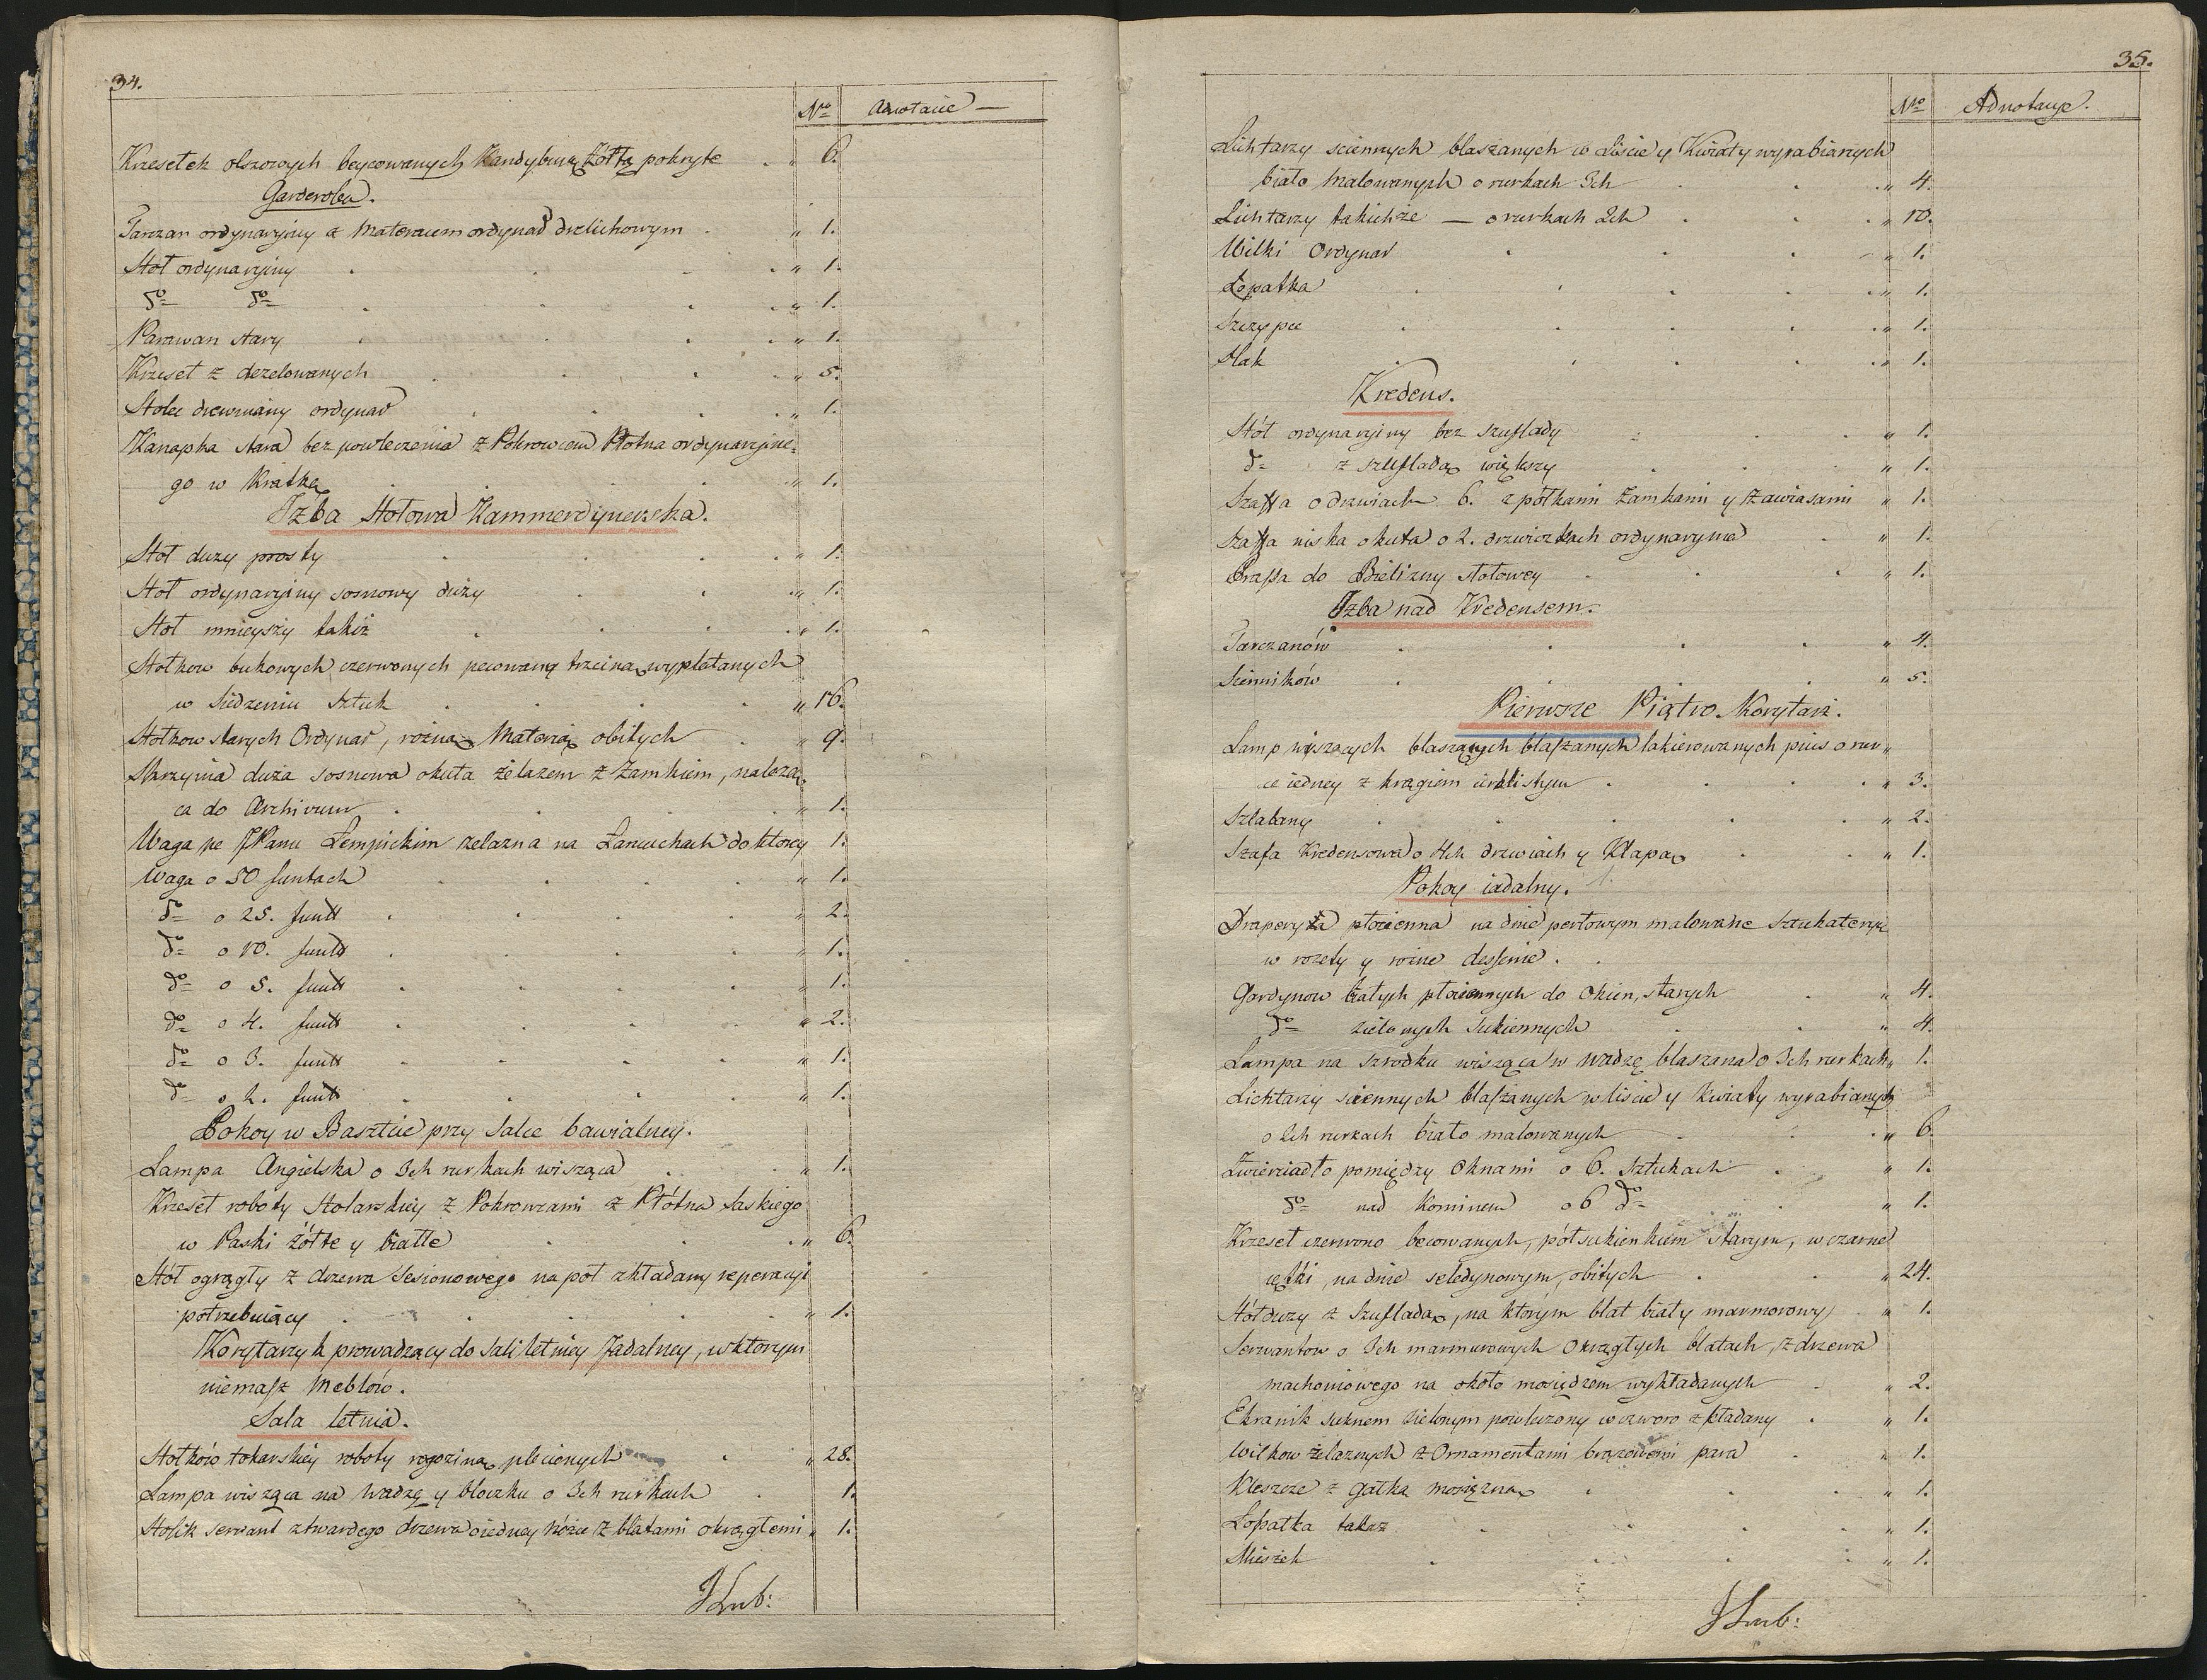 34.
No Adnotacie —
Krzesełek olszowych beycowanych Kandyburą żółtą pokryte " 6.
Garderoba.
Tarczan ordynaryiny z Materacem ordynar drelichowym " 1.
Stół ordynaryiny " 1.
do do " 1.
Parawan stary " 1.
Krzeseł z dezelowanych " 5.
Stolec drewniany ordynar " 1.
Kanapka stara bez powleczenia z Pokrowcem Płotna ordynaryine=
go w Kratkę " 1.
Izba Stołowa Kammerdynerska.
Stoł duży prosty " 1.
Stoł ordynaryiny sosnowy duży " 1.
Stoł mnieyszy takiż " 1.
Stołkow bukowych czerwonych pecowaną trzciną wyplatanych
w Siedzeniu Sztuk " 16.
Stołkow starych Ordynar, rożną Materią obitych " 9.
Skrzynia duża sosnowa okuta żelazem z Zamkiem, należą
ca do Archivum " 1.
Waga po JPanu Łempickim żelazna na Łancuchach do ktorey 1.
Waga o 50 funtach " 1.
do o 25. funtt " 2.
do o 10. funtt " 1.
do o 5. funtt " 1.
do o 4. funtt " 2.
do o 3. funtt " 1.
do o 2. funtt " 1.
Pokoy w Basztcie przy Salce bawialney.
Lampa Angielska o 3ch rurkach wisząca " 1.
Krzeseł roboty Stolarskiey z Pokrowcami z Płótna Saskiego
w Paski żółte y białłe " 6.
Stół ogrągły z drzewa Jesionowego na poł zkładany reperacyi
potrzebuiący " 1.
Korytarzyk prowadzący do Sali letniey Jadalney, w ktorym
niemasz Meblow.
Sala letnia.
Stołków tokarskiey roboty rogoziną plecionych " 28.
Lampa wisząca na Wadzę y bloczku o 3ch rurkach 1.
Stolik serwant z twardego drzewa o iedney Nóżce z blatami okrągłemi " 1.
JLub:
35.
No Adnotacye.
Lichtarzy sciennych blaszanych w Liście y Kwiaty wyrabianych
biało Malowanych o rurkach 3ch " 4.
Lichtarzy takichże — o rurkach 2ch " 10.
Wilki Ordynar " 1.
Łopatka " 1.
Szczypce " 1.
Hak " 1.
Kredens.
Stół ordynaryiny bez szuflady " 1.
do z szufladą większy " 1.
Szaffa o drzwiach 6. z półkami Zamkami y Zawiasami " 1.
Szaffa niska okuta o 2. drzwiczkach ordynaryina " 1.
Prassa do Bielizny stołowey " 1.
Izba nad Kredensem.
Tarczanów " 4.
Sienników " 5.
Pierwsze Piątro. Korytarz.
Lamp wiszących blaszanych blaszanych lakierowanych o rur
ce iedney z kręgiem " 3.
Szlabany " 2.
Szafa Kredensowa o 4ch drzwiach y Klapą " 1.
Pokoy iadalny.
Draperyia płocienna na dnie perłowym malowane sztukaterye
w rozety y rożne dessenie.
Gardynow białych płociennych do Okien, starych " 4.
do zielonych Sukiennych " 4.
Lampa na szrodku wisząca w Wadzę blaszana o 3ch rurkach " 1.
Lichtarzy sciennych blaszanych w liscie y kwiaty wyrabianych
o 2ch rurkach biało malowanych " 6.
Zwierciadło pomiędzy Oknami o 6. Sztukach " 1.
do nad Kominem o 6 do " 1.
Krzeseł czerwono becowanych, półsukienkiem starym, w czarne
cętki, na dnie seledynowym, obitych " 24.
Stół duży z Szufladą, na którym blat biały marmorowy " 1.
Serwantow o 3ch marmurowych Okrągłych blatach, z drzewa
machoniowego na około mosiędzem wykładanych " 2.
Ekranik suknem zielonym powleczony w czworo zkładany " 1.
Wilkow żelaznych z Ornamentami brązowemi para " 1.
Kleszcze z gałką mosiężną " 1.
Łopatka takaż " 1.
Mieszek " 1.
JLub: